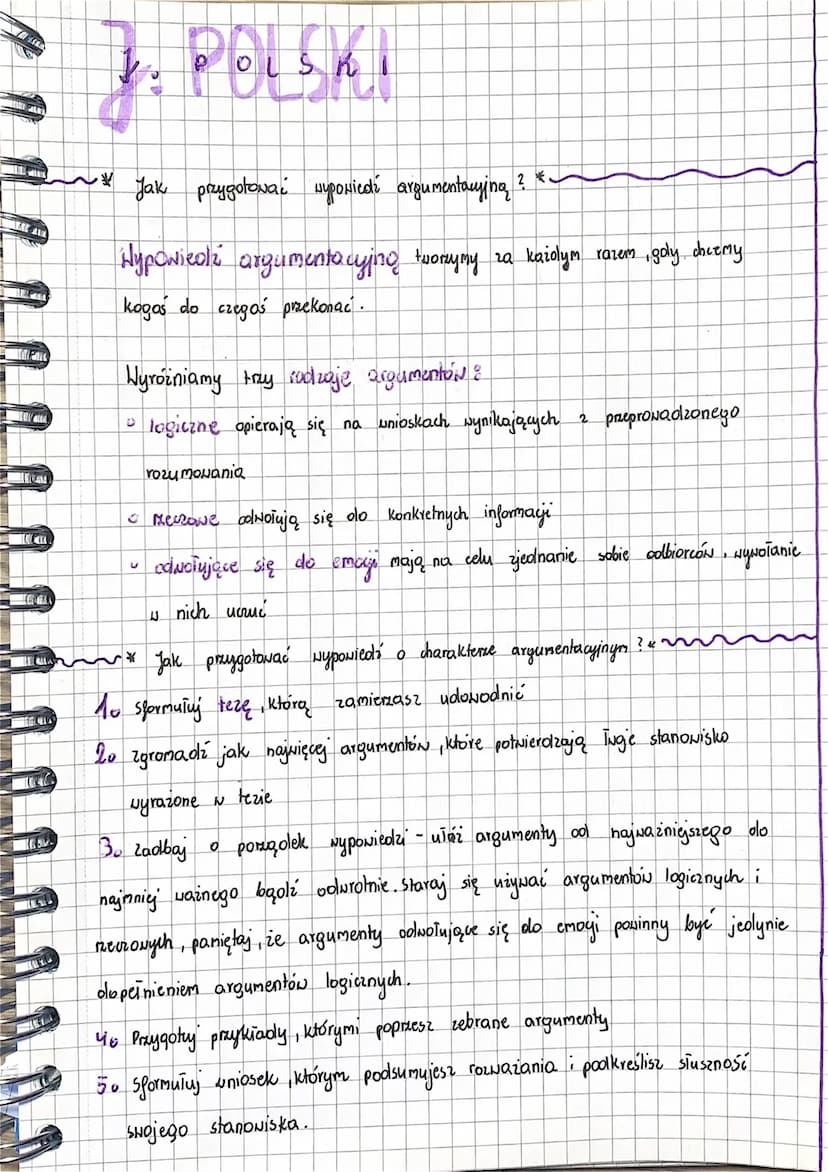 J. POLSKI
* Jak przygotować wypowiedź argumentacyjną? *
Wypowiedź argumentacyjną tworzymy za każdym razem, gdy chcemy
kogoś do czegoś przekonać.
Wyróżniamy trzy rodzaje argumentów:
◦ logiczne opierają się na wnioskach wynikających z przeprowadzonego
rozumowania
◦ rzeczowe odwołują się do konkretnych informacji
◦ odwołujące się do emocji mają na celu zjednanie sobie odbiorców, wywołanie
w nich uczuć
* Jak przygotować wypowiedź o charakterze argumentacyjnym? *
1. sformułuj tezę, którą zamierzasz udowodnić
2. zgromadź jak najwięcej argumentów, które potwierdzają Twoje stanowisko
wyrażone w tezie
3. zadbaj o porządek wypowiedzi - ułóż argumenty od najważniejszego do
najmniej ważnego bądź odwrotnie. Staraj się używać argumentów logicznych i
rzeczowych, pamiętaj, że argumenty odwołujące się do emocji powinny być jedynie
dopełnieniem argumentów logicznych.
4. Przygotuj przykłady, którymi poprzesz zebrane argumenty
5. Sformułuj wniosek, którym podsumujesz rozważania i podkreślisz słuszność
swojego stanowiska.